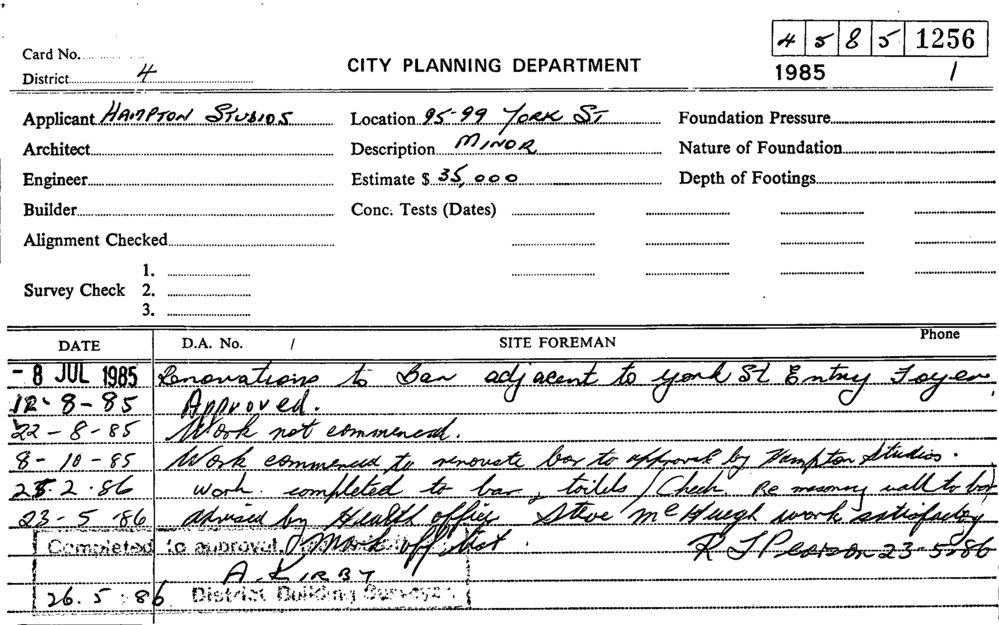 4 5 8 5 1256
Card No.
CITY PLANNING DEPARTMENT
District 4
1985 1
Applicant HAMPTON STUDIOS Location 95-99 YORK ST Foundation Pressure
Architect Description MINOR Nature of Foundation
Engineer Estimate $ 35,000 Depth of Footings
Builder Conc. Tests (Dates)
Alignment Checked
1.
Survey Check 2.
3.
DATE D.A. No. / SITE FOREMAN Phone
- 8 JUL 1985 Renovations to Bar adjacent to york St Entry Foyer
12-8-85 Approved.
22-8-85 Work not commenced.
8-10-85 Work commenced to renovate bar to approval by Hampton Studios.
25.2.86 work completed to bar, toilets / Check Re masonry wall to bar
23-5-86 advised by Health officer Steve McHuegh work satisfactory
Completed to approval. Mark off that. R J Pearson 23-5-86
A. KIRBY
26.5.86 District Building Surveyor